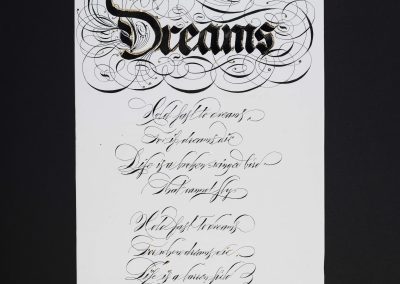 Dreams
Hold fast to dreams,
For if dreams die
Life is a broken winged bird
That cannot fly.
Hold fast to dreams
For when dreams die
Life is a barren field